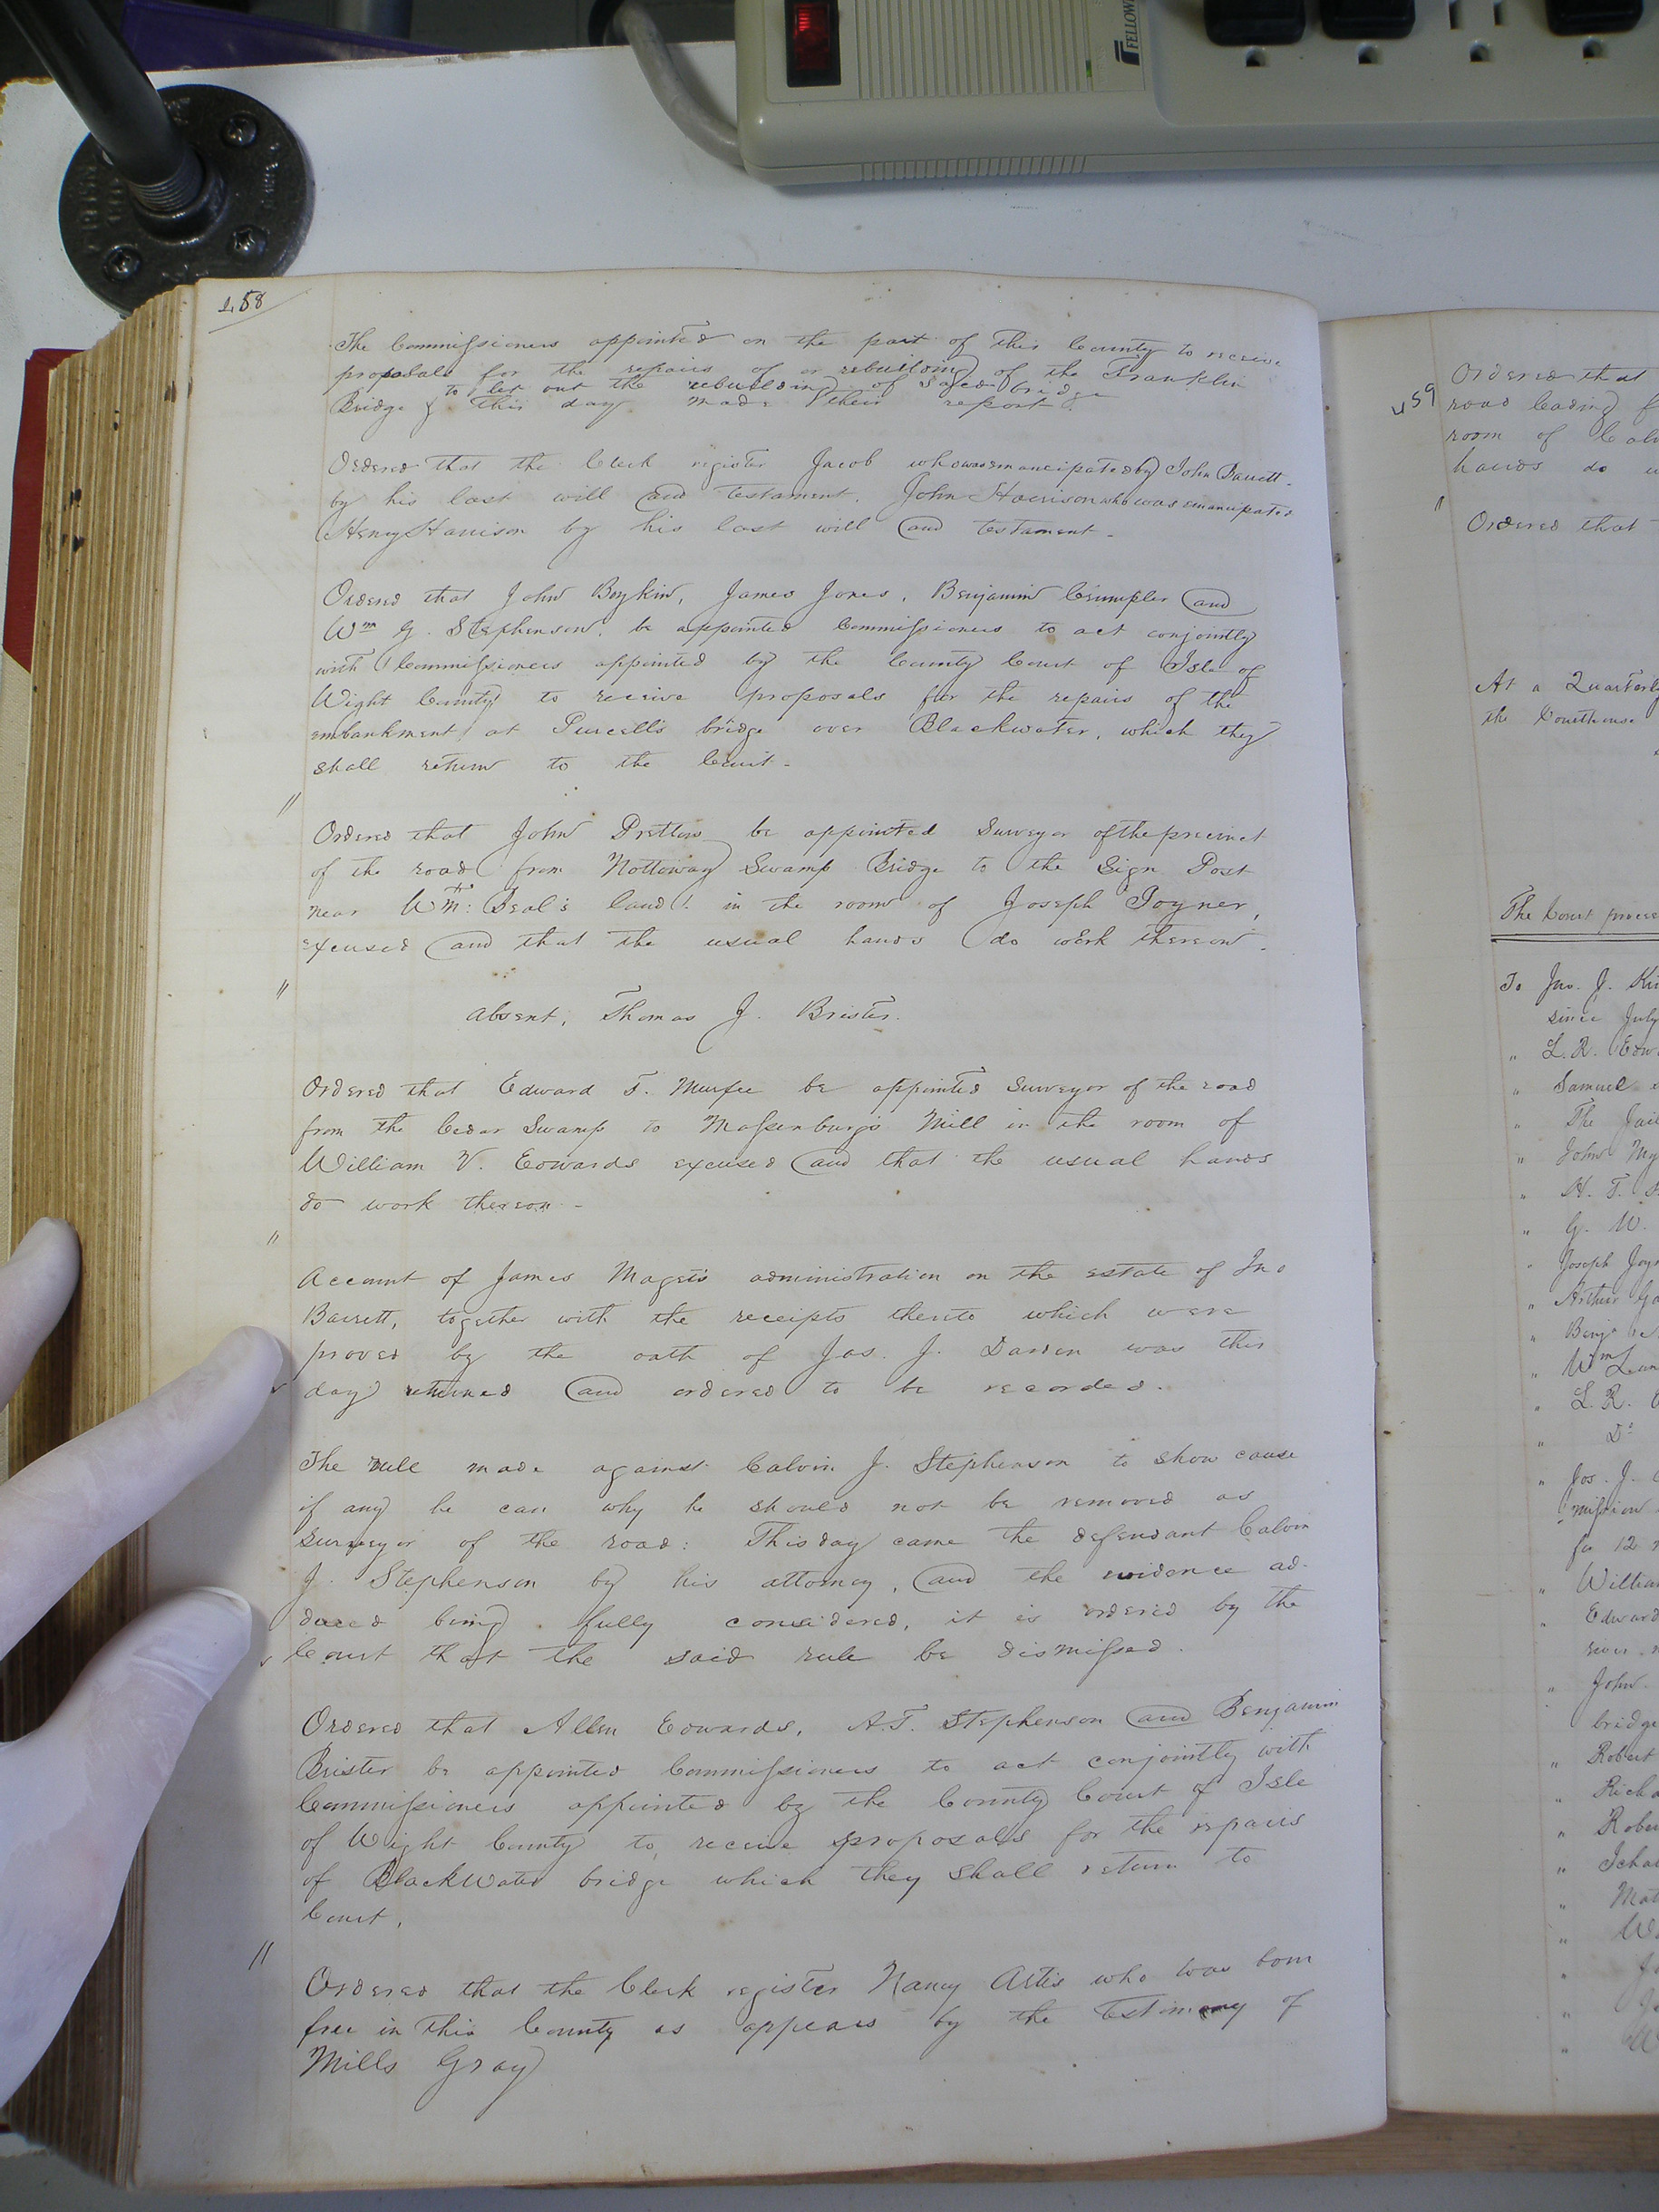 FELLOW
458
The Commissioners appointed on the part of this County to receive
proposals for the repairs of or rebuilding of the Franklin
to let out the rebuilding of said bridge
Bridge & this day made their report.
Ordered that the Clerk register Jacob who was emancipated by John Barrett
by his last will and testament, John Harrison who was emancipated
Henry Harrison by his last will and testament.
Ordered that John Boykin, James Jones, Benjamin Crumpler and
Wm G. Stephenson, be appointed Commissioners to act conjointly
with Commissioners appointed by the County Court of Isle of
Wight County to receive proposals for the repairs of the
embankment at Purcell's bridge over Blackwater, which they
shall return to the Court.
"
Ordered that John Pretlow be appointed Surveyor of the precinct
of the road from Nottoway Swamp Bridge to the Sign Post
near Wm: Beal's land in the room of Joseph Joyner,
excused and that the usual hands do work thereon.
"
Absent, Thomas J. Brister.
Ordered that Edward T. Murfee be appointed Surveyor of the road
from the Cedar Swamp to Massenburg's Mill in the room of
William V. Edwards excused and that the usual hands
do work thereon.
"
Account of James Maget's administration on the estate of Jno
Barrett, together with the receipts thereto which were
proved by the oath of Jas. J. Darden was this
day returned and ordered to be recorded.
The rule made against Calvin J. Stephenson to show cause
if any he can why he should not be removed as
surveyor of the road: This day came the defendant Calvin
J. Stephenson by his attorney, and the evidence ad-
duced being fully considered, it is ordered by the
Court that the said rule be dismissed.
Ordered that Allen Edwards, A.T. Stephenson and Benjamin
Brister be appointed Commissioners to act conjointly with
Commissioners appointed by the County Court of Isle
of Wight County to receive proposals for the repairs
of BlackWater bridge which they shall return to
Court.
"
Ordered that the Clerk register Nancy Artis who was born
free in this County as appears by the testimony of
Mills Gray
459
Ordered that
road leading f
room of Calv
hands do w
"
Ordered that
At a Quarterly
the Courthouse
The Court procee
To Jno. J. Ki
since July
" L. R. Edw
" Samuel
" The Jail
" John My
" H. T.
" G. W.
" Joseph Joyn
" Arthur
" Benj
" Wm
" L. R.
" Do
" Jos. J.
mission
for 12
" Willia
" Edward
" John
bridge
" Robert
" Richa
" Rober
" Icha
" Mat
" W